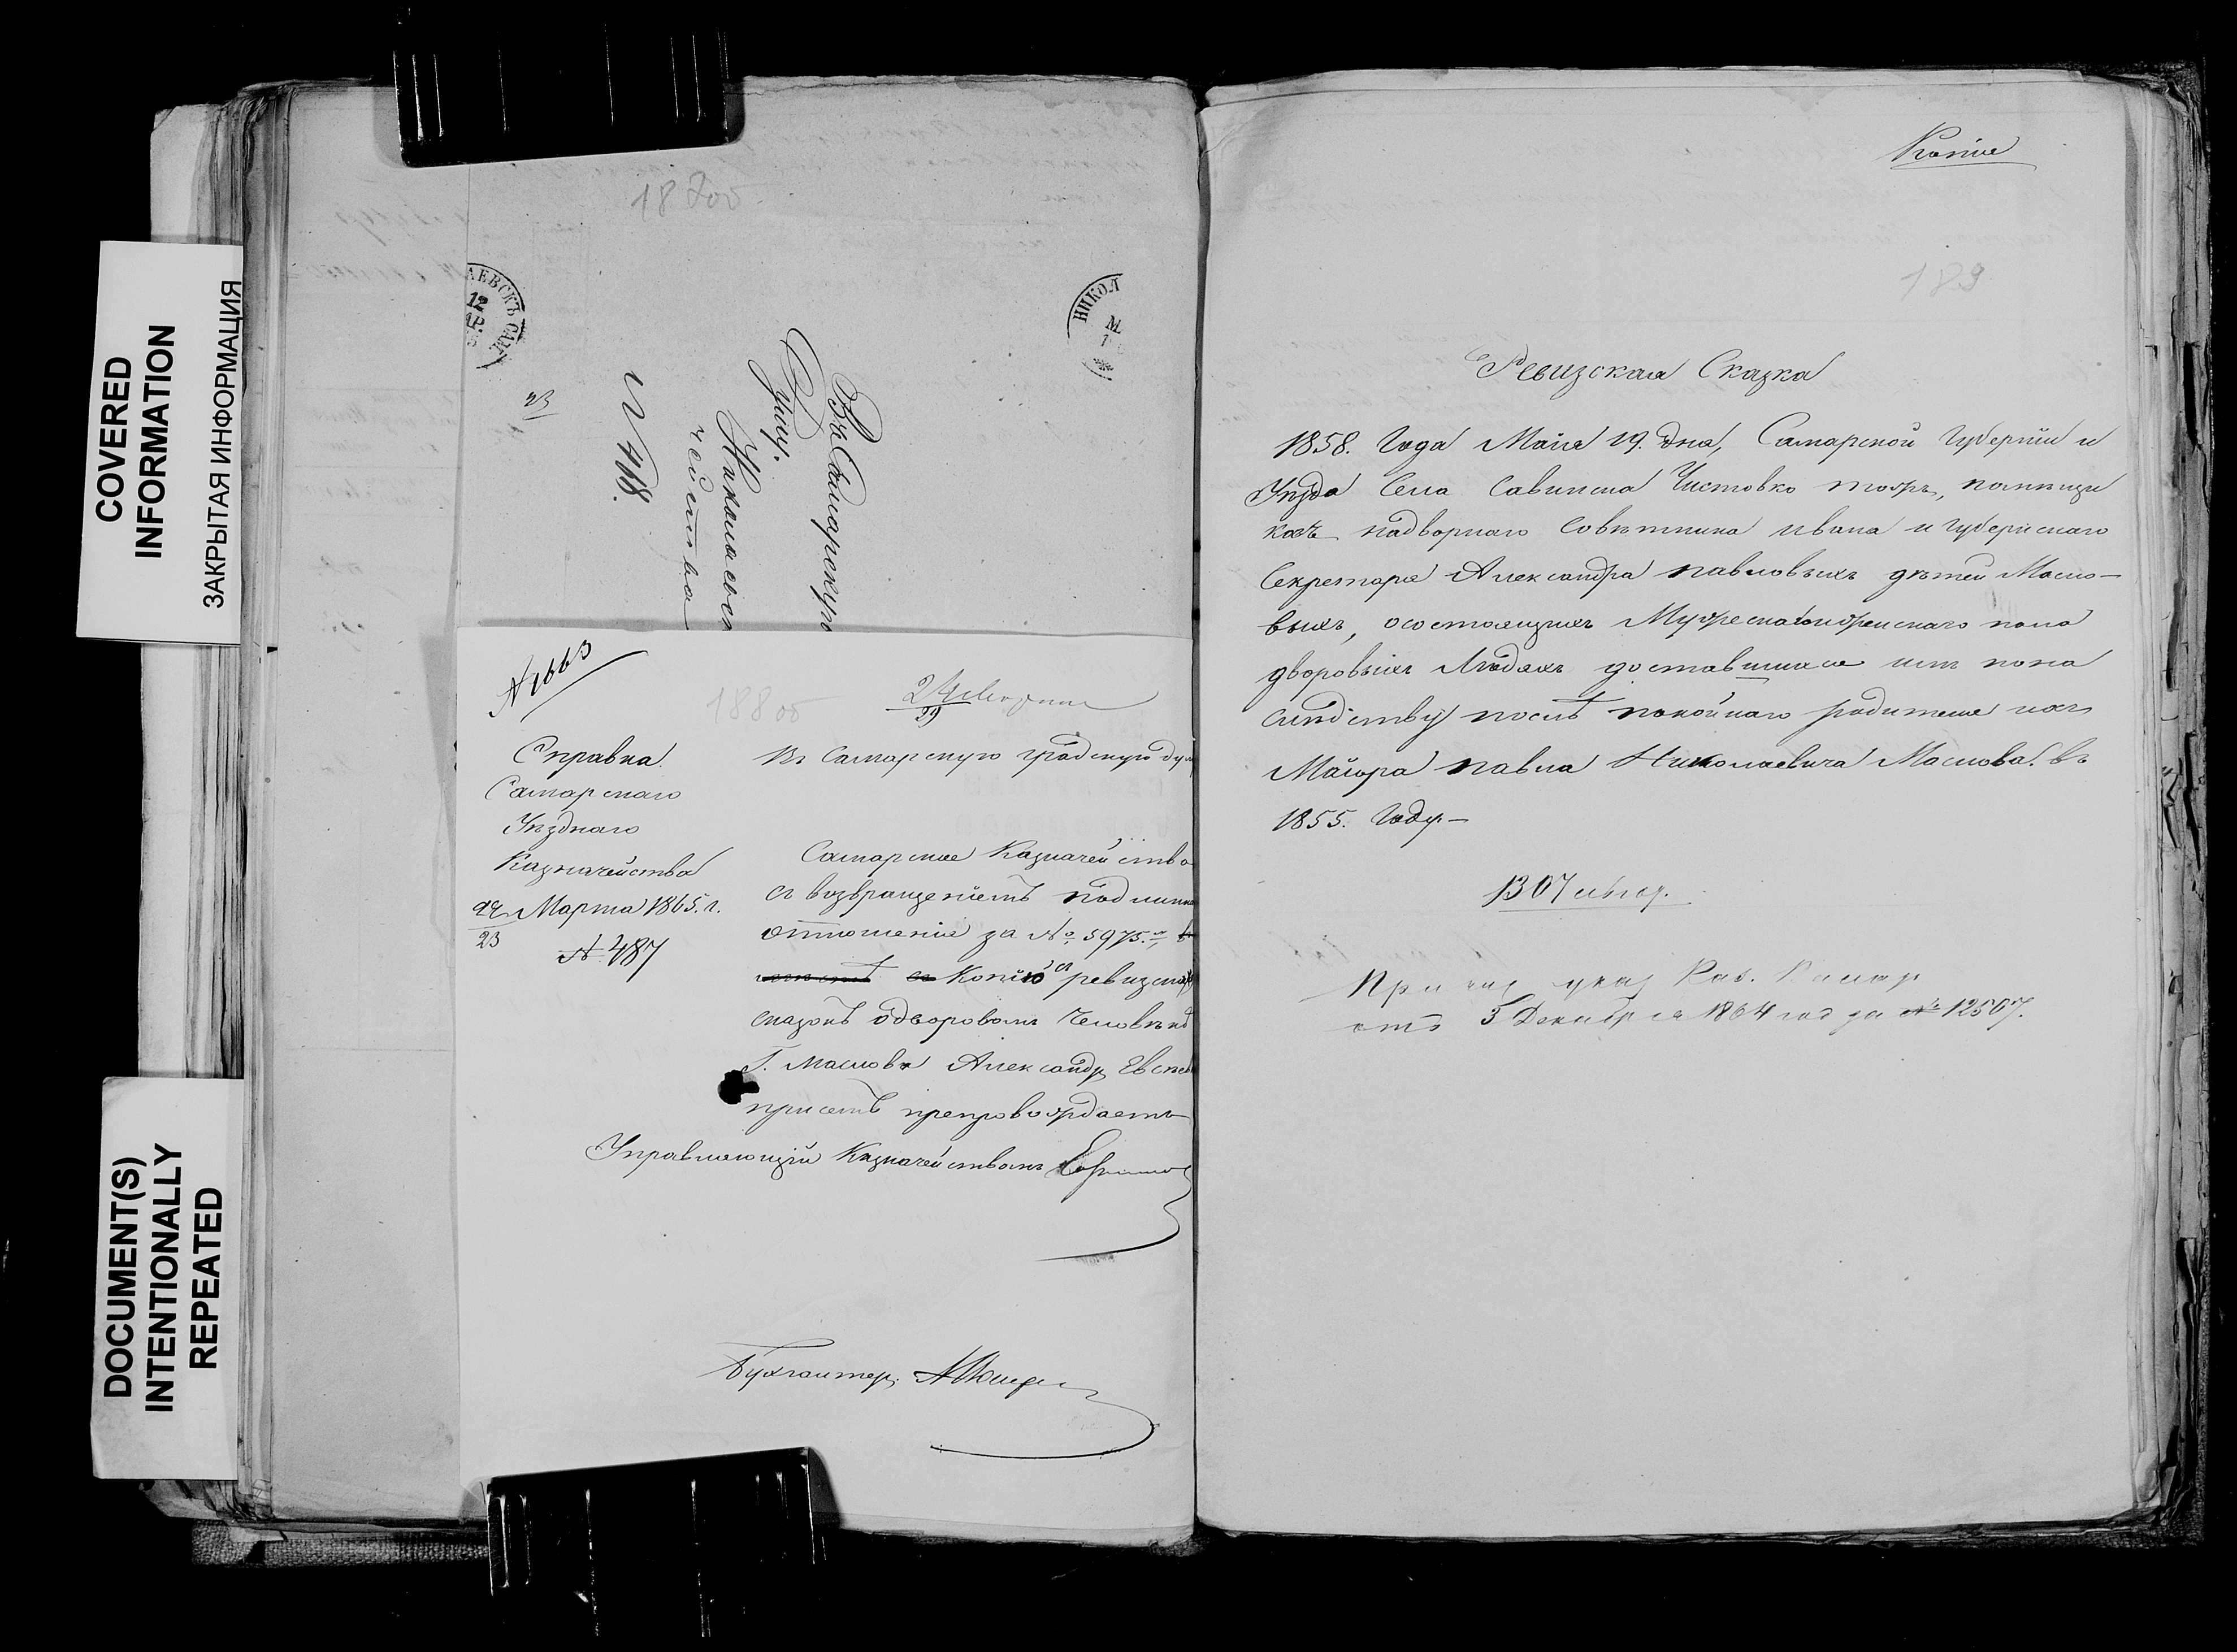 COVERED
INFORMATION
ЗАКРЫТАЯ ИНФОРМАЦИЯ
DOCUMENT(S)
INTENTIONALLY
REPEATED
АЕВСКЪ САМ
12
НИКОЛ
М
1
23
Въ Самарскую
Думу.
N 418.
N 1663
24 Марта
Справка
Самарскаго
Уѣзднаго
Казначейства
Марта 1865. г.
23
№ 487
Въ Самарскую градскую
Самарское Казначейство
съ возвращеніемъ
отношенія за № 5975.
Копію съ
сказокъ о дворовомъ
Г. Маслова Александр
при семъ препровождаетъ
Управляющій Казначействомъ
Бухгалтер
Копія
189
Ревизская Сказка
1858. Года Маія 19. дня, Самарской Губерніи и
Уѣзда Села Савинска Чистовко тожъ, помѣщи
ковъ надворнаго Совѣтника ивана и губернскаго
Секретаря Александра павловыхъ дѣтей Масло-
выхъ, осостоящихъ Мужеска и женскаго пола
дворовыхъ Людяхъ доставшихся имъ по на
слѣдству послѣ покойнаго родителя ихъ
Маіора павла Николаевича Маслова. въ
1855. Году -
1307
отъ 3 Декабря 1864 год за № 12507.